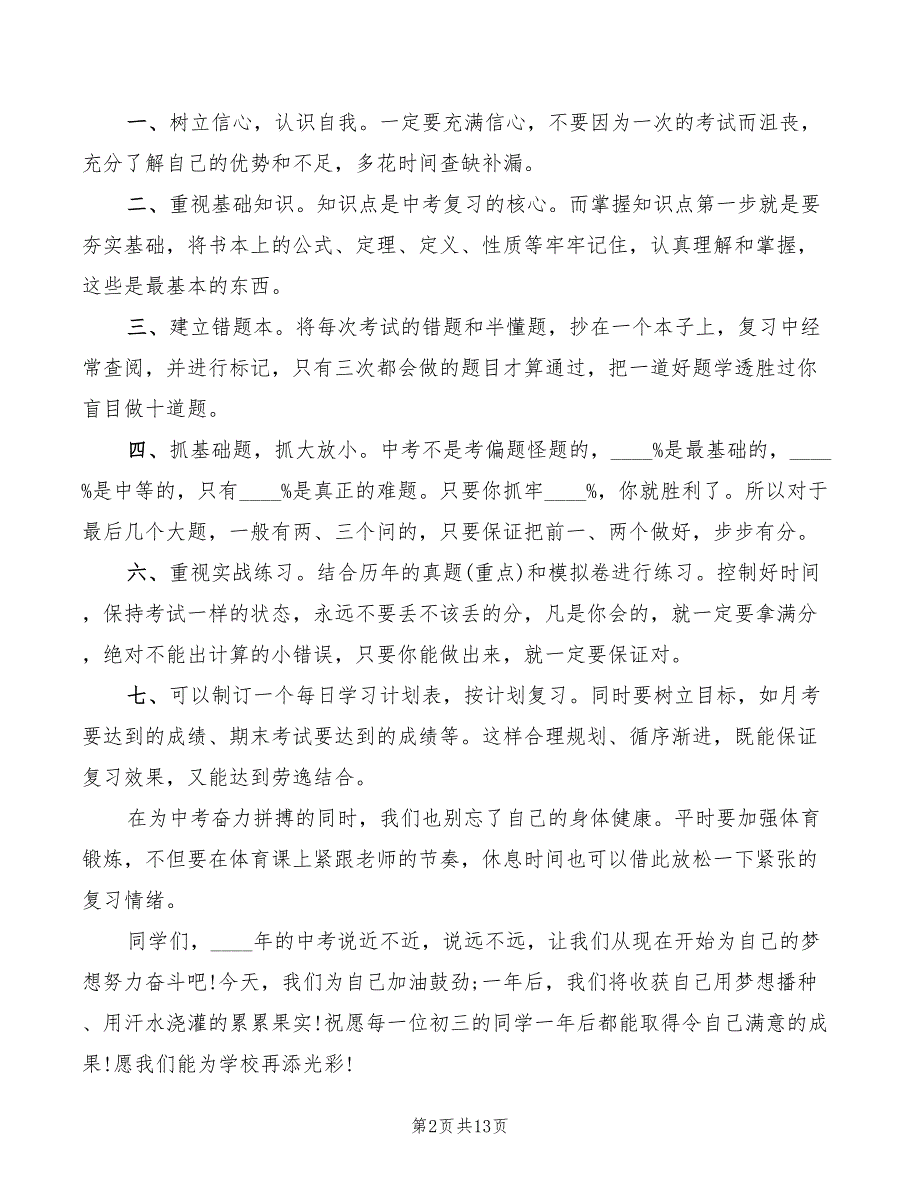 一、树立信心，认识自我。一定要充满信心，不要因为一次的考试而沮丧，
充分了解自己的优势和不足，多花时间查缺补漏。
二、重视基础知识。知识点是中考复习的核心。而掌握知识点第一步就是要
夯实基础，将书本上的公式、定理、定义、性质等牢牢记住，认真理解和掌握，
这些是最基本的东西。
三、建立错题本。将每次考试的错题和半懂题，抄在一个本子上，复习中经
常查阅，并进行标记，只有三次都会做的题目才算通过，把一道好题学透胜过你
盲目做十道题。
四、抓基础题，抓大放小。中考不是考偏题怪题的，____%是最基础的，____
%是中等的，只有____%是真正的难题。只要你抓牢____%，你就胜利了。所以对于
最后几个大题，一般有两、三个问的，只要保证把前一、两个做好，步步有分。
六、重视实战练习。结合历年的真题(重点)和模拟卷进行练习。控制好时间
，保持考试一样的状态，永远不要丢不该丢的分，凡是你会的，就一定要拿满分
，绝对不能出计算的小错误，只要你能做出来，就一定要保证对。
七、可以制订一个每日学习计划表，按计划复习。同时要树立目标，如月考
要达到的成绩、期末考试要达到的成绩等。这样合理规划、循序渐进，既能保证
复习效果，又能达到劳逸结合。
在为中考奋力拼搏的同时，我们也别忘了自己的身体健康。平时要加强体育
锻炼，不但要在体育课上紧跟老师的节奏，休息时间也可以借此放松一下紧张的
复习情绪。
同学们，____年的中考说近不近，说远不远，让我们从现在开始为自己的梦
想努力奋斗吧!今天，我们为自己加油鼓劲;一年后，我们将收获自己用梦想播种
、用汗水浇灌的累累果实!祝愿每一位初三的同学一年后都能取得令自己满意的成
果!愿我们能为学校再添光彩!
第2页共13页